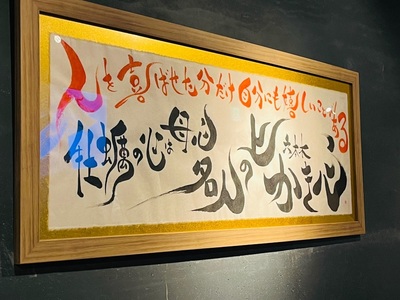 人を喜ばせた分だけ自分にも嬉しいことがある
牡蠣の心は母心
六本木